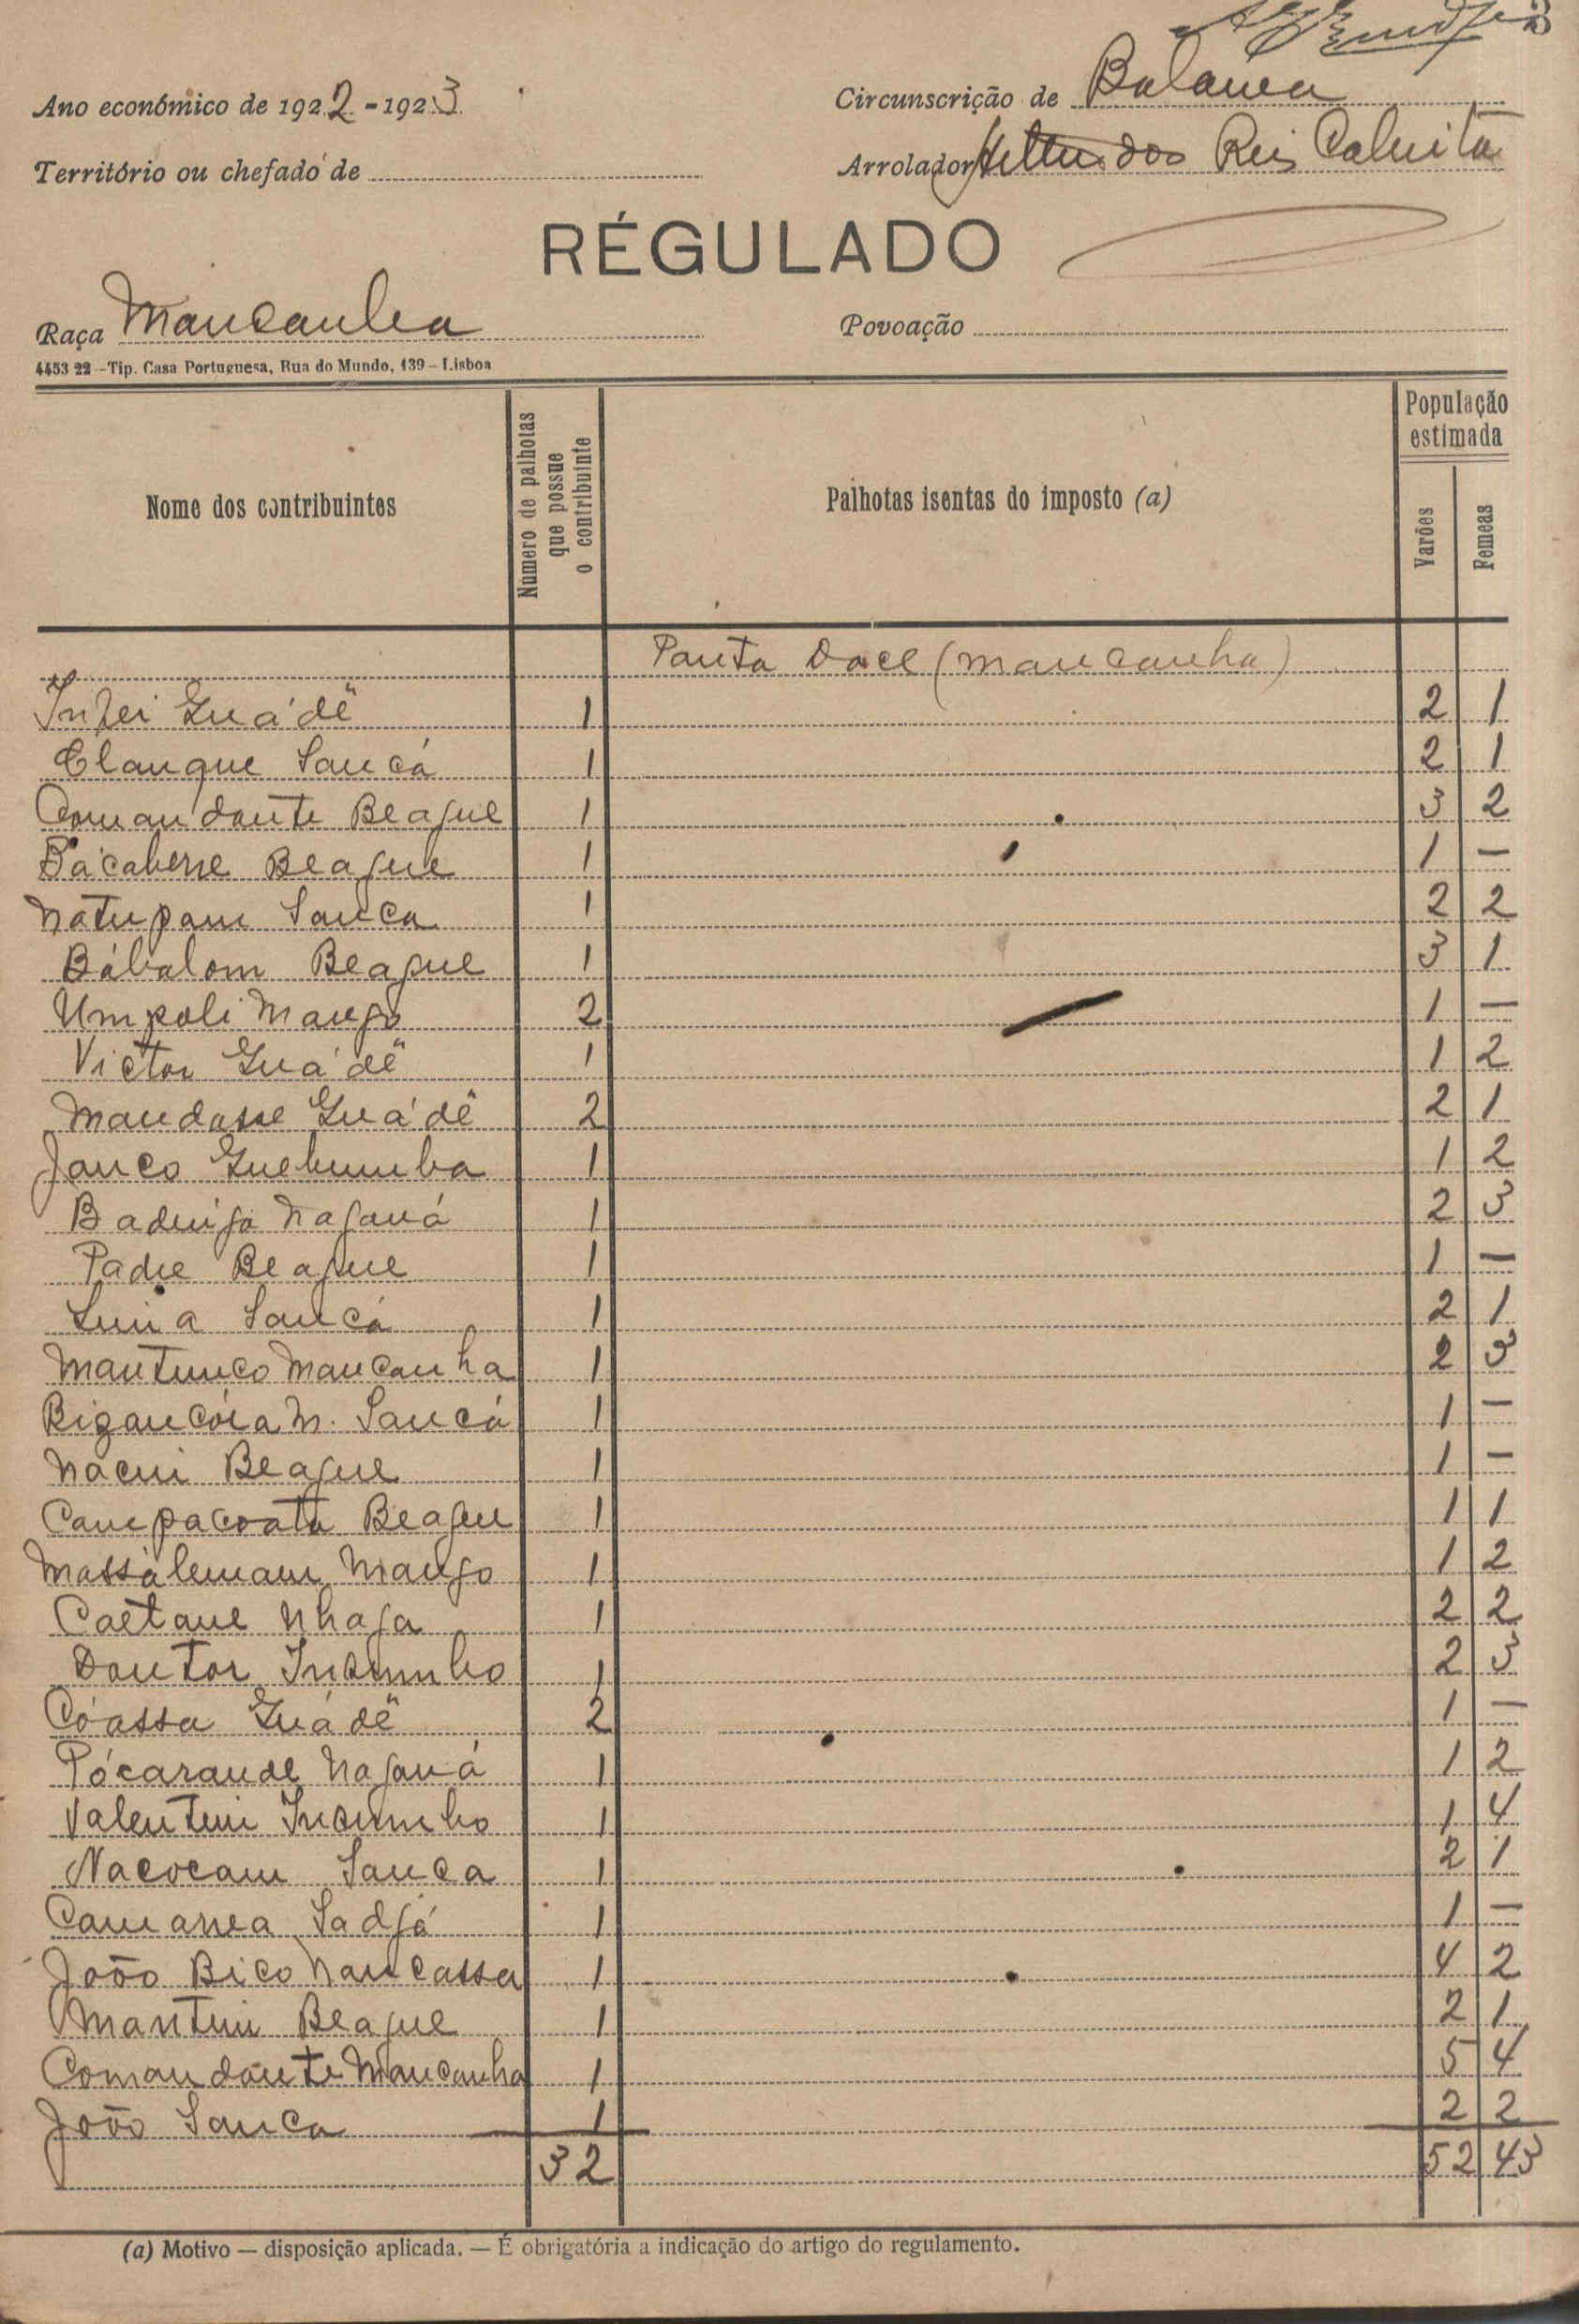 Ano económico de 1922-1923
Circunscrição de
Território ou chefado de
Arrolador dos Reis
RÉGULADO
Raça Mancanha
Povoação
4453 22 - Tip. Casa Portuguesa, Rua do Mundo, 139 - Lisboa
Nome dos contribuintes
Número de palhotas que possue o contribuinte
Palhotas isentas do imposto (a)
População estimada
Varões
Femeas
(Mancanha)
Guádê 1 2 1
Clanque Sancá 1 2 1
Comandante Beague 1 3 2
Beague 1 1 —
Natupam Sanca 1 2 2
Bábalom Beague 1 3 1
Umpoli Mango 2 1 —
Victor Guádê 1 1 2
Mandasse Guádê 2 2 1
Janco 1 1 2
Naganá 1 2 3
Padre Beague 1 1 —
Sancá 1 2 1
Mancanha 1 2 3
N. Sancá 1 1 —
Beague 1 1 —
Beague 1 1 1
Mango 1 1 2
Caetane Nhaga 1 2 2
Doutor 1 2 3
Cóassa Guádê 2 1 —
Pócarande Naganá 1 1 2
Valentim 1 1 4
Nacocam Sanca 1 2 1
Sadjó 1 1 —
João Bico Nancassa 1 4 2
Beague 1 2 1
Comandante Mancanha 1 5 4
João Sanca 1 2 2
32 52 43
(a) Motivo — disposição aplicada. — É obrigatória a indicação do artigo do regulamento.